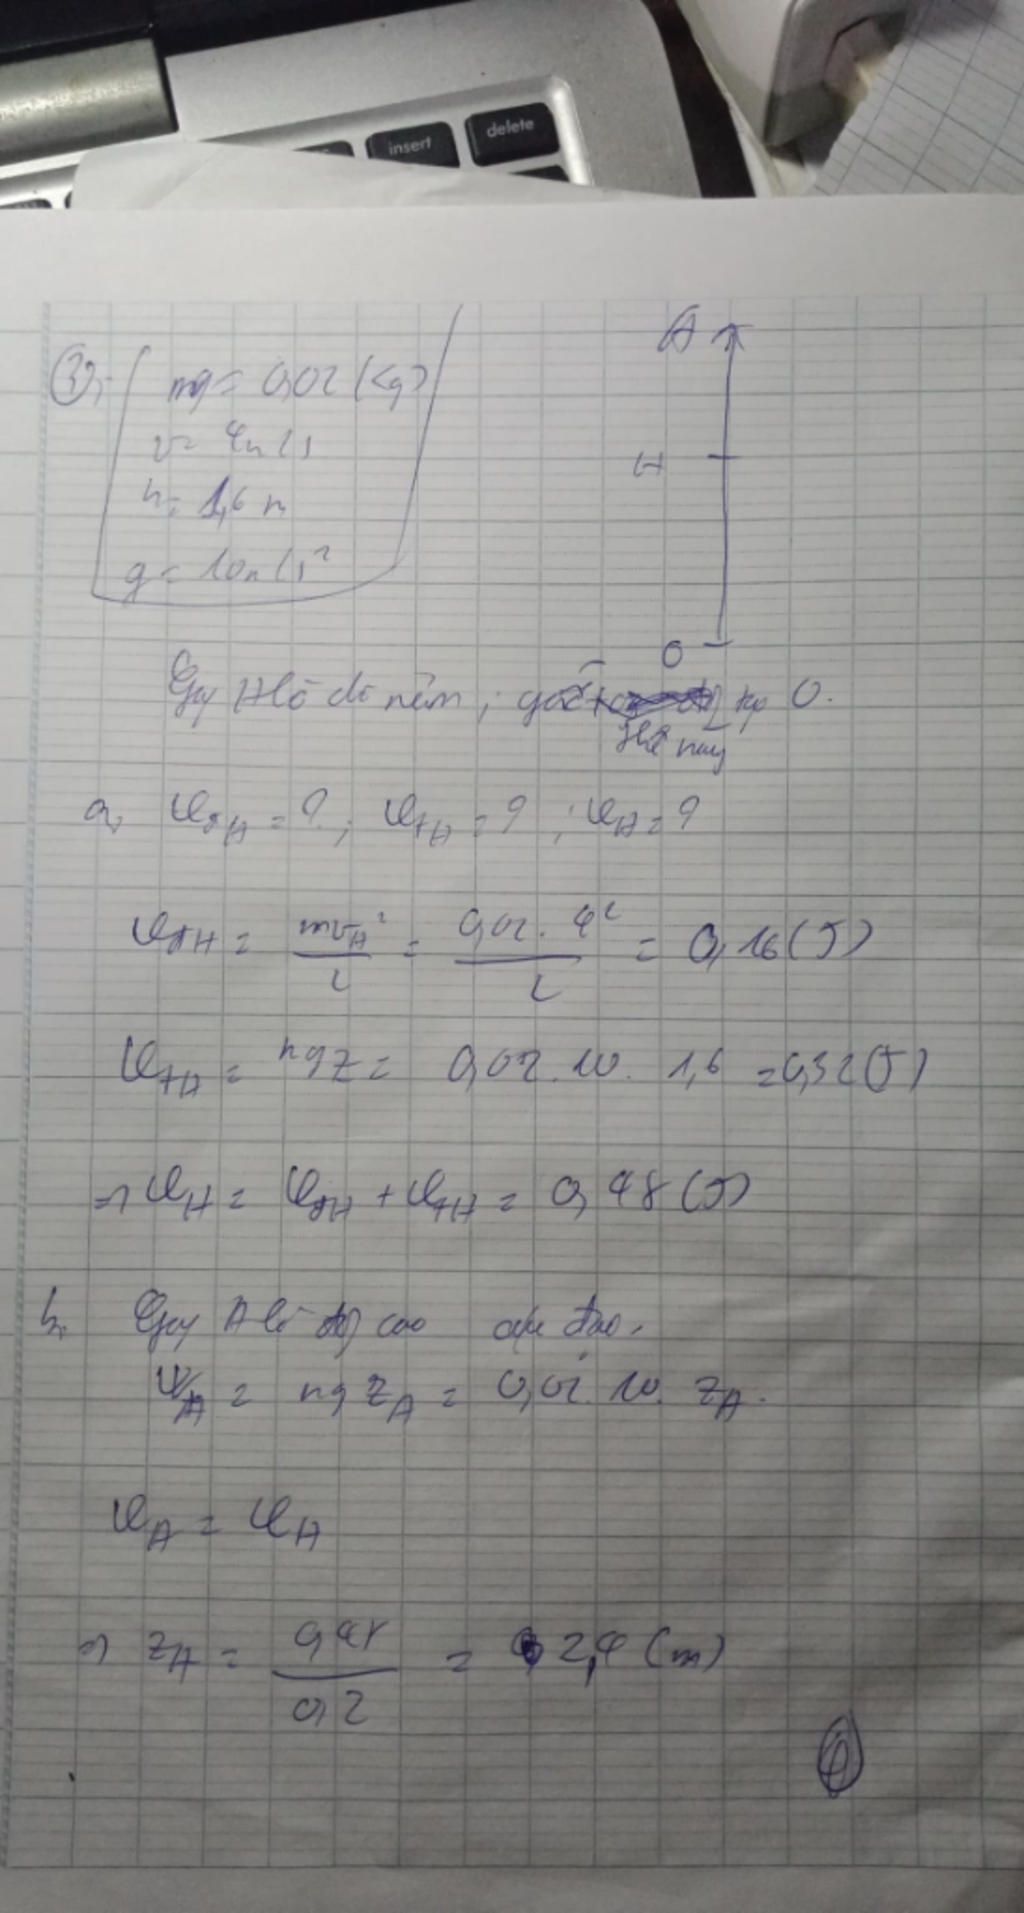 insert
delete
3,
m = 0,02 (kg)
v = 4m/s
h = 1,6 m
g = 10m/s²
A
H
O
Gọi H là điểm ném ; gốc thế năng tại O.
a, WđH = ? ; WtH = ? ; WH = ?
WđH = mvH² / 2 = 0,02. 4² / 2 = 0,16 (J)
WtH = mgz = 0,02. 10. 1,6 = 0,32 (J)
=> WH = WđH + WtH = 0,48 (J)
b, Gọi A là độ cao cực đại.
WA = mg zA = 0,02. 10. zA.
WA = WH
=> zA = 0,48 / 0,2 = 2,4 (m)